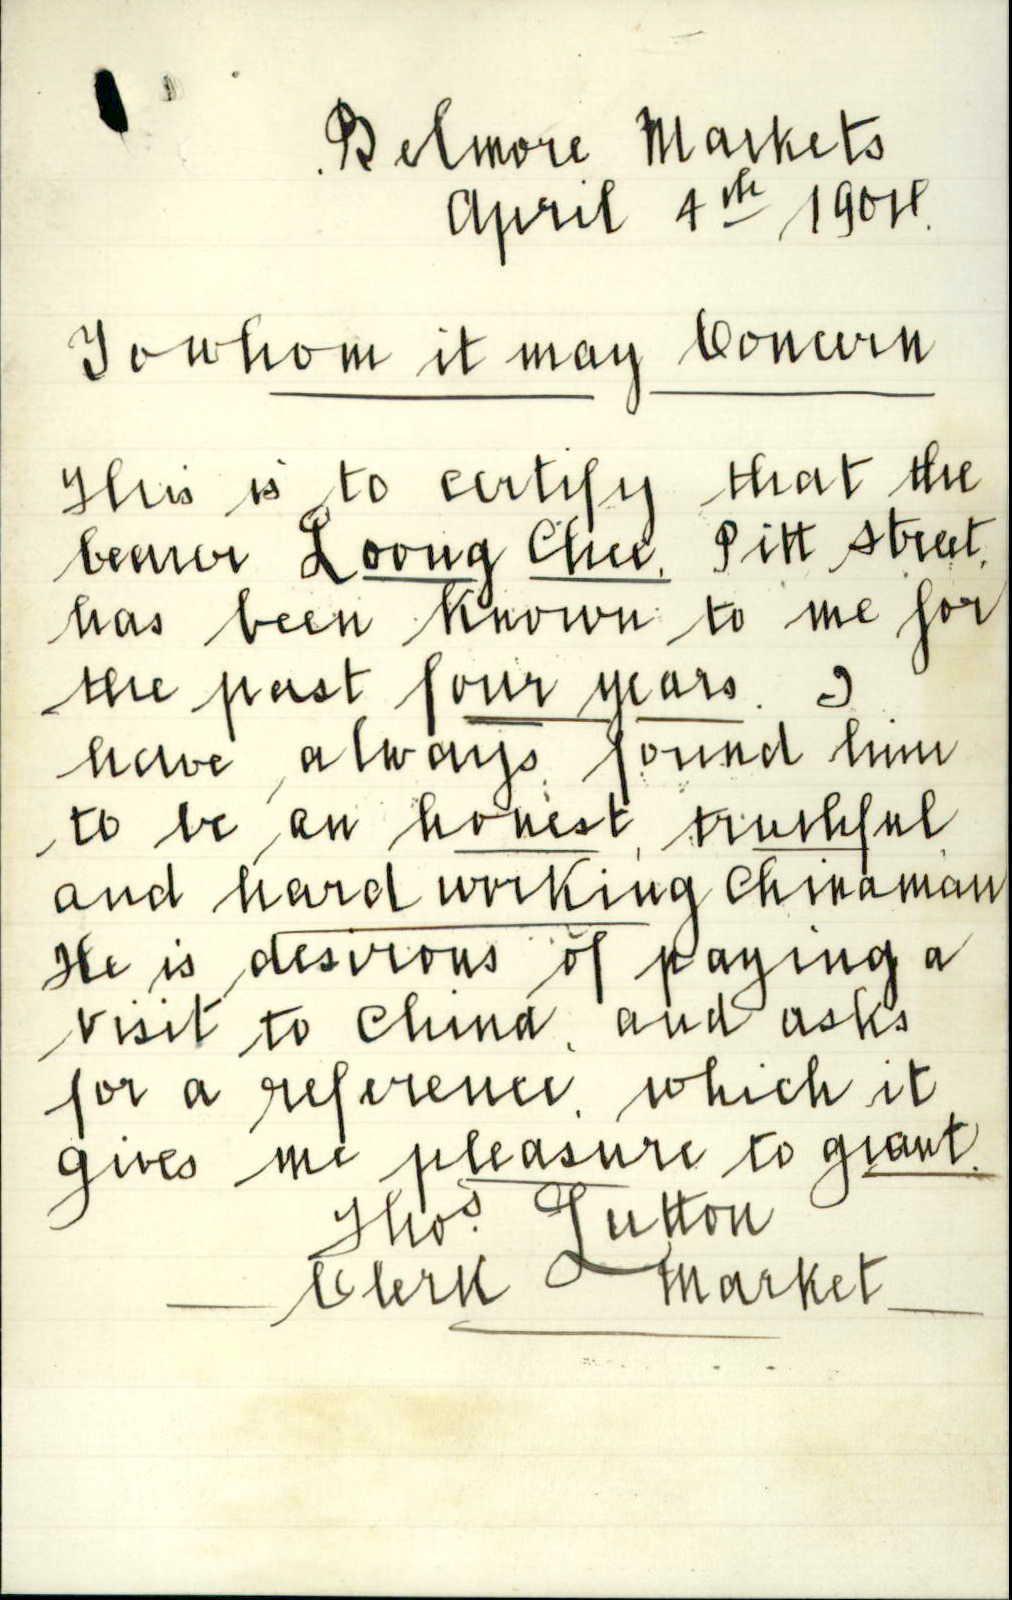 Belmore Markets
April 4th 1904.
To whom it may Concern
This is to certify that the
bearer Loong Chee. Pitt Street.
has been known to me for
the past four years. I
have always found him
to be an honest, truthful
and hard working Chinaman
He is desirous of paying a
visit to China, and asks
for a reference, which it
gives me pleasure to grant.
Thos. Lutton
Clerk Market